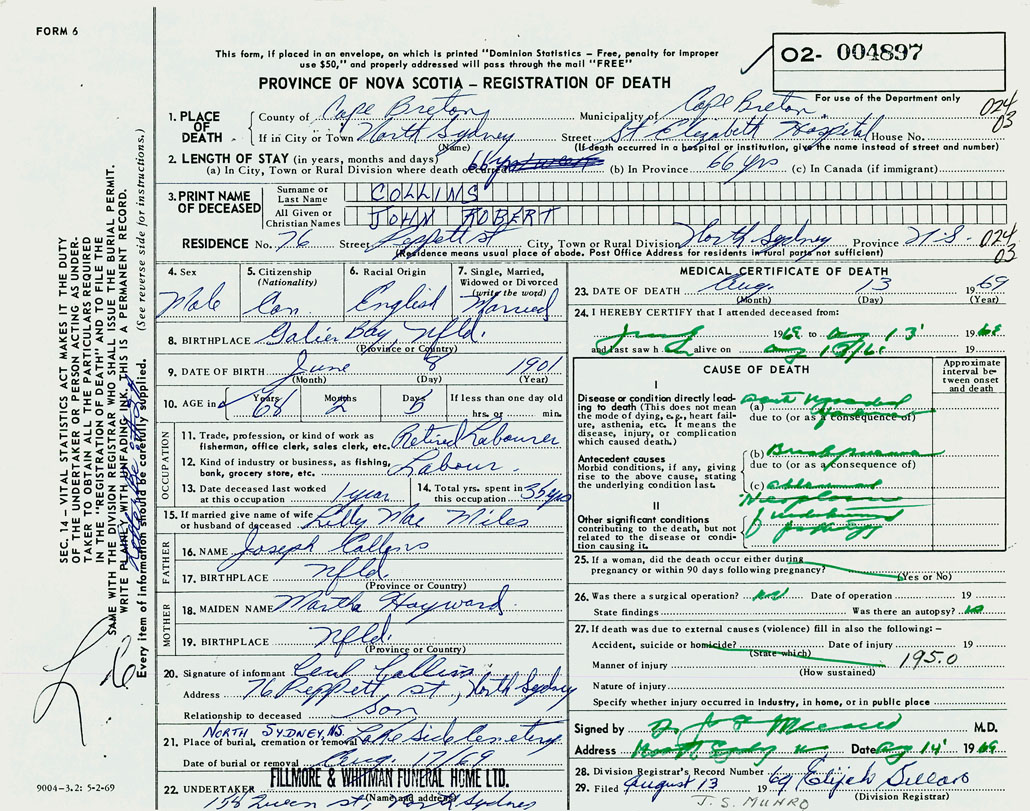 FORM 6
This form, if placed in an envelope, on which is printed "Dominion Statistics – Free, penalty for improper
use $50," and properly addressed will pass through the mail "FREE"
O2- 004897
For use of the Department only
PROVINCE OF NOVA SCOTIA – REGISTRATION OF DEATH
1. PLACE OF DEATH
County of Cape Breton Municipality of Cape Breton
024
03
If in City or Town North Sydney Street St Elizabeth Hospital House No.
(Name) (If death occurred in a hospital or institution, give the name instead of street and number)
2. LENGTH OF STAY (in years, months and days)
(a) In City, Town or Rural Division where death occurred 66 yrs (b) In Province 66 yrs (c) In Canada (if immigrant)
3. PRINT NAME OF DECEASED
Surname or Last Name COLLINS
All Given or Christian Names JOHN ROBERT
RESIDENCE No. 76 Street Peppett st City, Town or Rural Division North Sydney Province N.S. 024
03
(Residence means usual place of abode. Post Office Address for residents in rural parts not sufficient)
SEC. 14 – VITAL STATISTICS ACT MAKES IT THE DUTY
OF THE UNDERTAKER OR PERSON ACTING AS UNDER-
TAKER TO OBTAIN ALL THE PARTICULARS REQUIRED
IN THE "REGISTRATION OF DEATH" AND TO FILE THE
SAME WITH THE DIVISION REGISTRAR WHO SHALL ISSUE THE BURIAL PERMIT.
WRITE PLAINLY WITH UNFADING INK. THIS IS A PERMANENT RECORD.
Every item of information should be carefully supplied. (See reverse side for instructions.)
4. Sex Male
5. Citizenship (Nationality) Can.
6. Racial Origin English
7. Single, Married, Widowed or Divorced (write the word) Married
8. BIRTHPLACE Bay, Nfld.
(Province or Country)
9. DATE OF BIRTH June 8 1901
(Month) (Day) (Year)
10. AGE in Years 68 Months 2 Days 5 If less than one day old
hrs. or min.
OCCUPATION
11. Trade, profession or kind of work as
fisherman, office clerk, sales clerk, etc. Retired Labourer
12. Kind of industry or business, as fishing,
bank, grocery store, etc. Labour.
13. Date deceased last worked
at this occupation 1 year
14. Total yrs. spent in
this occupation 35 yrs
15. If married give name of wife
or husband of deceased Lilly Mae Miles
FATHER
16. NAME Joseph Collins
17. BIRTHPLACE Nfld.
(Province or Country)
MOTHER
18. MAIDEN NAME Martha Hayward
19. BIRTHPLACE Nfld.
(Province or Country)
20. Signature of informant Collins
Address 76 Peppett st, North Sydney
Relationship to deceased son
NORTH SYDNEY, N.S.
21. Place of burial, cremation or removal Lakeside Cemetery
Date of burial or removal Aug. 17/69
FILLMORE & WHITMAN FUNERAL HOME LTD.
22. UNDERTAKER (Name and address)
Queen st North Sydney
9004-3.2: 5-2-69
MEDICAL CERTIFICATE OF DEATH
23. DATE OF DEATH Aug. 13 1969
(Month) (Day) (Year)
24. I HEREBY CERTIFY that I attended deceased from:
19 to Aug 13 19
and last saw h alive on 19
CAUSE OF DEATH
Approximate interval between onset and death
I
Disease or condition directly lead-
ing to death (This does not mean
the mode of dying, e.g., heart fail-
ure, asthenia, etc. It means the
disease, injury, or complication
which caused death.)
(a)
due to (or as a consequence of)
Antecedent causes
Morbid conditions, if any, giving
rise to the above cause, stating
the underlying condition last.
(b)
due to (or as a consequence of)
(c)
II
Other significant conditions
contributing to the death, but not
related to the disease or condi-
tion causing it.
25. If a woman, did the death occur either during
pregnancy or within 90 days following pregnancy?
(Yes or No)
26. Was there a surgical operation? no Date of operation 19
State findings Was there an autopsy? no
27. If death was due to external causes (violence) fill in also the following: –
Accident, suicide or homicide? Date of injury 19
(State which)
195.0
Manner of injury
(How sustained)
Nature of injury
Specify whether injury occurred in Industry, in home, or in public place
Signed by M.D.
Address Date Aug 14 1969
28. Division Registrar's Record Number
29. Filed August 13 1969 Elijah
(Division Registrar)
J. S. MUNRO